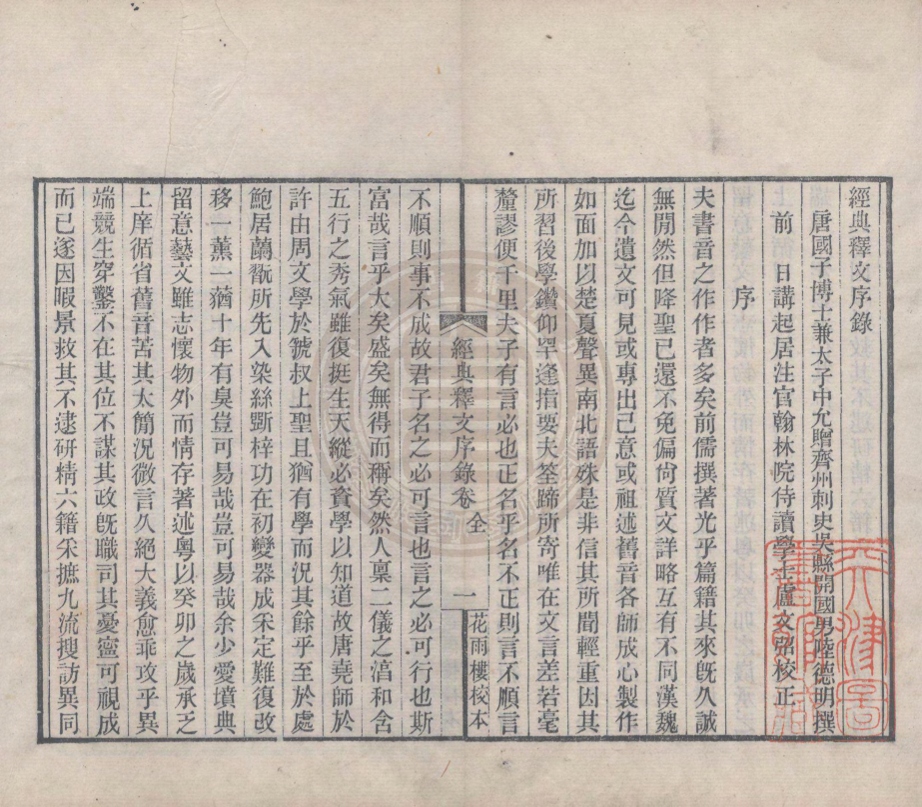 經典釋文序錄
唐國子博士兼太子中允贈齊州刺史吳縣開國男陸德明撰
前日講起居注官翰林院侍讀學士盧文弨校正
序
夫書音之作作者多矣前儒撰著光乎篇籍其來旣久誠
無閒然但降聖已還不免偏尙質文詳略互有不同漢魏
迄今遺文可見或專出己意或祖述舊音各師成心製作
如面加以楚夏聲異南北語殊是非信其所聞輕重因其
所習後學鑽仰罕逢指要夫筌蹄所寄唯在文言差若毫
釐謬便千里夫子有言必也正名乎名不正則言不順言
經典釋文序錄卷全
一
花雨樓校本
不順則事不成故君子名之必可言也言之必可行也斯
富哉言乎大矣盛矣無得而稱矣然人稟二儀之湻和含
五行之秀氣雖復挺生天縱必資學以知道故唐堯師於
許由周文學於虢叔上聖且猶有學而況其餘乎至於處
鮑居蘭翫所先入染絲斲梓功在初變器成采定難復改
移一薰一蕕十年有臭豈可易哉豈可易哉余少愛墳典
留意藝文雖志懷物外而情存著述粵以癸卯之歲承乏
上庠循省舊音苦其太簡況微言久絕大義愈乖攻乎異
端競生穿鑿不在其位不謀其政旣職司其憂寧可視成
而已遂因暇景救其不逮硏精六籍采摭九流搜訪異同